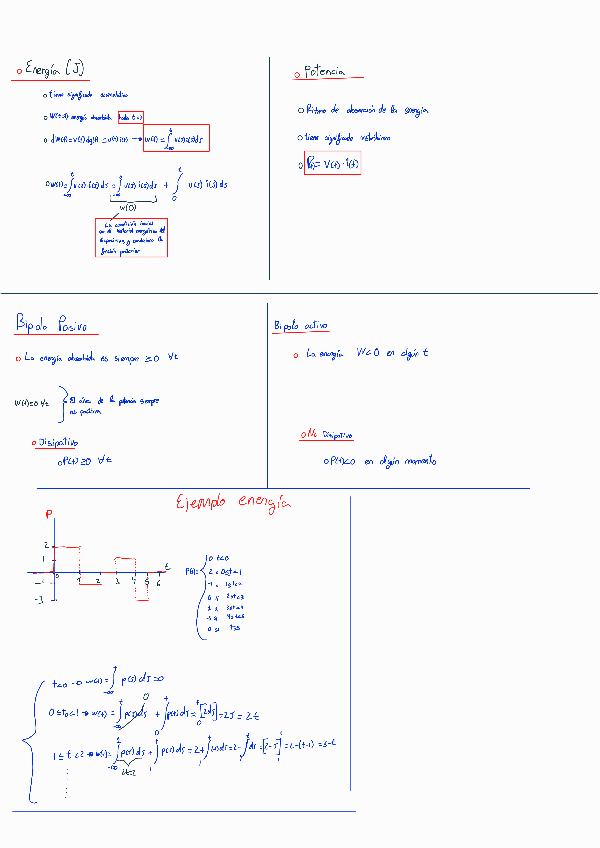 Energía (J)
tiene significado acumulativo
W(t): energía absorbida hasta t=
dW(t) = v(t) dq(t) = v(t) i(t) → w(t) = ∫ v(s) i(s) ds
w(t) = ∫ v(s) i(s) ds = ∫ v(s) i(s) ds + ∫ v(s) i(s) ds
t
-∞
0
w(0)
La condición inicial
es de material energético del
dispositivo, y condiciona la
función posterior
Potencia
Ritmo de absorción de la energía
tiene significado instantáneo
P(t) = v(t) · i(t)
Bipolo Pasivo
La energía absorbida es siempre ≥0 ∀t
W(t)≥0 ∀t
El área de la siempre
es positiva
Disipativo
P(t) ≥0 ∀t
Bipolo activo
La energía W<0 en algún t
No Disipativo
P(t)<0 en algún momento
Ejemplo energía
P
2
1
-1
-3
0 1 2 3 4 5 6 t
P(t)=
0 t<0
2 0≤t<1
-1 1≤t<2
0 2≤t<3
1 3≤t<4
-3 4≤t<5
0 t≥5
t<0 → w(t) = ∫ p(s) ds = 0
0≤t<1 → w(t) = ∫ p(s) ds + ∫ p(s) ds = [2s] = 2t
1≤t<2 → w(t) = ∫ p(s) ds + ∫ p(s) ds = 2+ ∫ ds = 2- ∫ ds = [2-s] = 2-(t-1) = 3-t